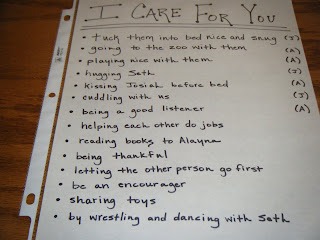 I CARE FOR YOU
• tuck them into bed nice and snug (J)
• going to the zoo with them (A)
• playing nice with them (A)
• hugging Seth (J)
• kissing Josiah before bed (A)
• cuddling with us (J)
• being a good listener (A)
• helping each other do jobs
• reading books to Alayna
• being thankful
• letting the other person go first
• be an encourager
• sharing toys
• by wrestling and dancing with Seth